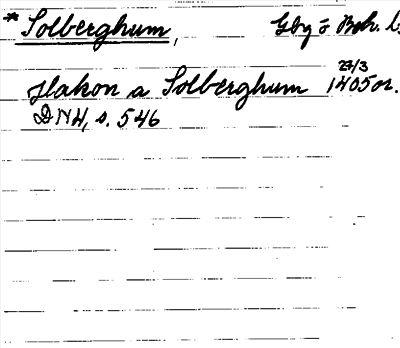 * Solberghum, Gbg o Boh. l.
Hakon a Solberghum 27/3 1405 or.
DN 4, s. 546